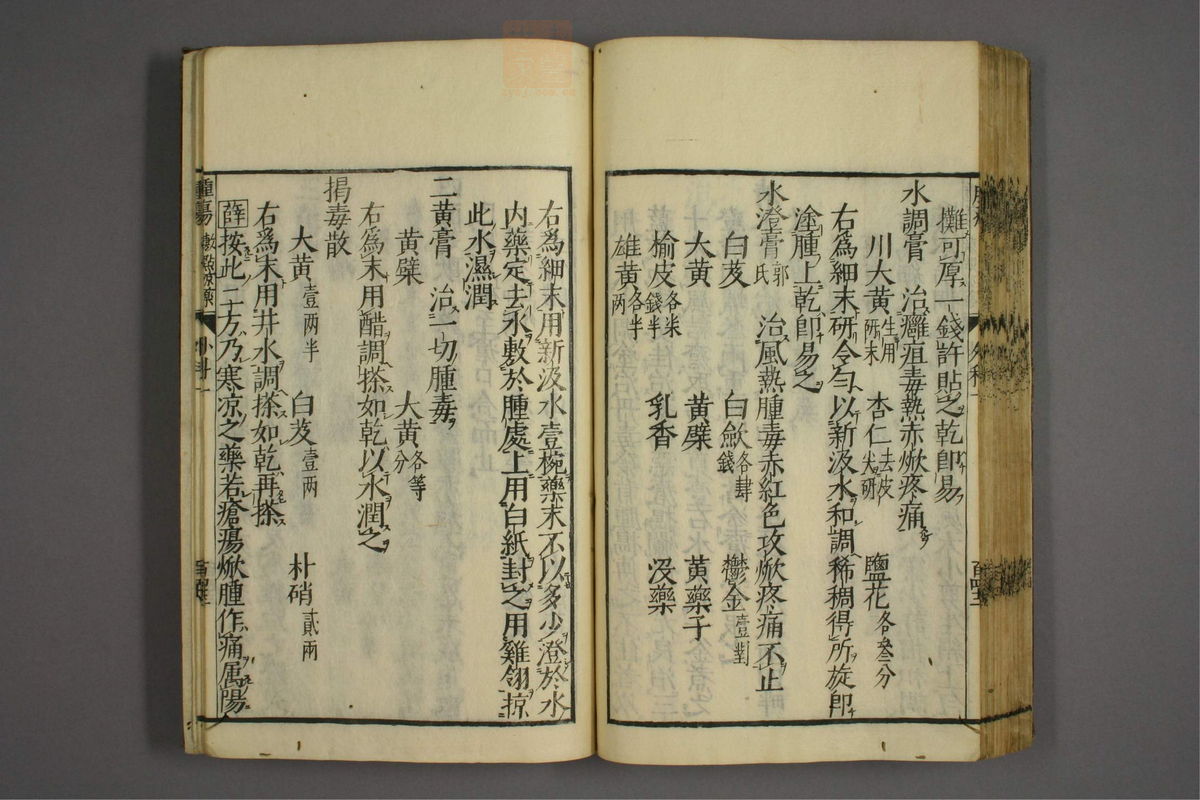 攤可厚一錢許貼之乾卽易
水調膏 治癰疽毒熱赤焮疼痛
川大黃生用研末 杏仁去皮尖研 鹽花各叁分
右爲細末研令勻以新汲水和調稀稠得所旋卽
塗腫上乾卽易之
水澄膏郭氏 治風熱腫毒赤紅色攻焮疼痛不止
白芨 白歛各肆錢 鬱金壹對
大黃 黃蘗 黃藥子
榆皮各柒錢半 乳香 沒藥
雄黃各半兩
右爲細末用新汲水壹椀藥末不以多少澄於水
內藥定去水敷於腫處上用白紙封之用雞翎掠
此水濕潤
二黃膏 治一切腫毒
黃蘗 大黃各等分
右爲末用醋調搽如乾以水潤之
搨毒散
大黃壹兩半 白芨壹兩 朴硝貳兩
右爲末用井水調搽如乾再搽
薛按此二方乃寒凉之藥若瘡瘍焮腫作痛属陽
腫瘍 外科一